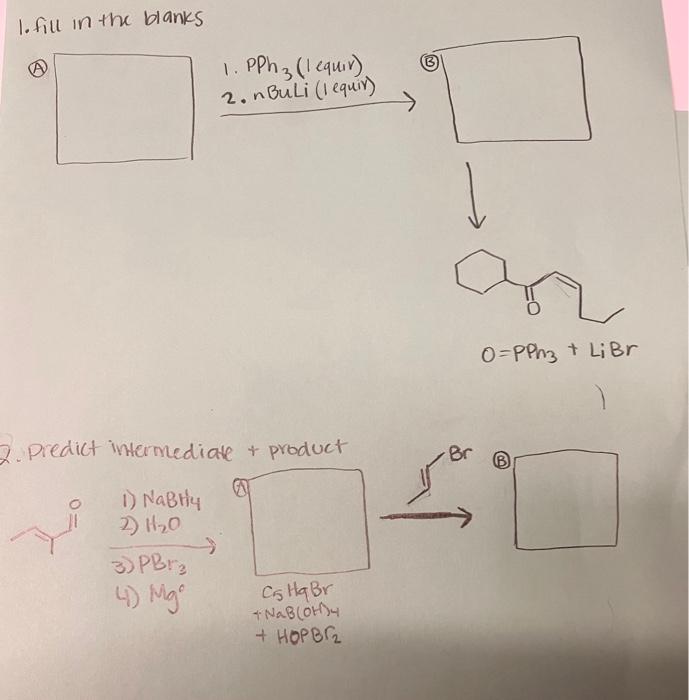 1. fill in the blanks
A
1. PPh3 (1 equiv)
2. nBuLi (1 equiv)
B
O
O=PPh3 + LiBr
2. Predict intermediate + product
O
1) NaBH4
2) H2O
3) PBr3
4) Mg°
A
C5H9Br
+ NaB(OH)4
+ HOPBr2
Br
B